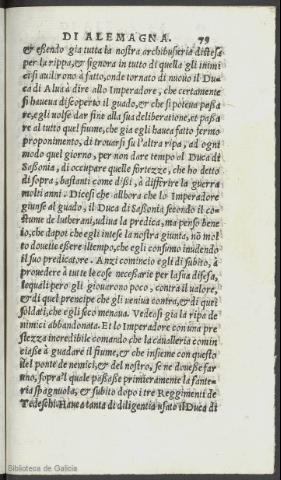 DI ALEMAGNA. 79
& essendo gia tutta la nostra archibusieria distesa
per la rippa, & signora in tutto di quella gli inimi
ci si auilirono à fatto, onde tornato di nuouo il Du
ca di Alua à dire allo Imperadore, che certamente
si haueua discoperto il guado, & che si poteua passa
re, egli uolse dar fine alla sua deliberatione, et passa
re al tutto quel fiume, che gia egli haueua fatto fermo
proponimento, di trouarsi su l'altra ripa, ad ogni
modo quel giorno, per non dare tempo al Duca di
Sassonia, di occupare quelle fortezze, che ho detto
di sopra, bastanti come dissi, à differire la guerra
molti anni. Dicesi che allhora che lo Imperadore
giunse al guado, il Duca di Sassonia secondo il co
stume de lutherani, udina la predica, ma penso bene
io, che dapoi che egli intese la nostra giunta, nõ mol
to douette essere il tempo, che egli consumo in udendo
il suo predicatore. Anzi comincio egli di subito, à
prouedere à tutte le cose necessarie per la sua difesa,
le quali pero gli giouarono poco, contra il ualore,
& di quel prencipe che gli ueniua contra, & di quei
soldati, che egli seco menaua. Vedeasi gia la ripa de
nimici abbandonata. Et lo Imperadore con una pre
stezza incredibile comando che la caualleria comin
ciasse à guadare il fiume, & che insieme con questo
del ponte de nemici, & del nostro, se ne douesse far
uno, sopra'l quale passasse primieramente la fante-
ria spagnuola, & subito dapo i tre Reggimenti de
Tedeschi. Hauea tanta di diligentia usato il Duca di
Biblioteca de Galicia